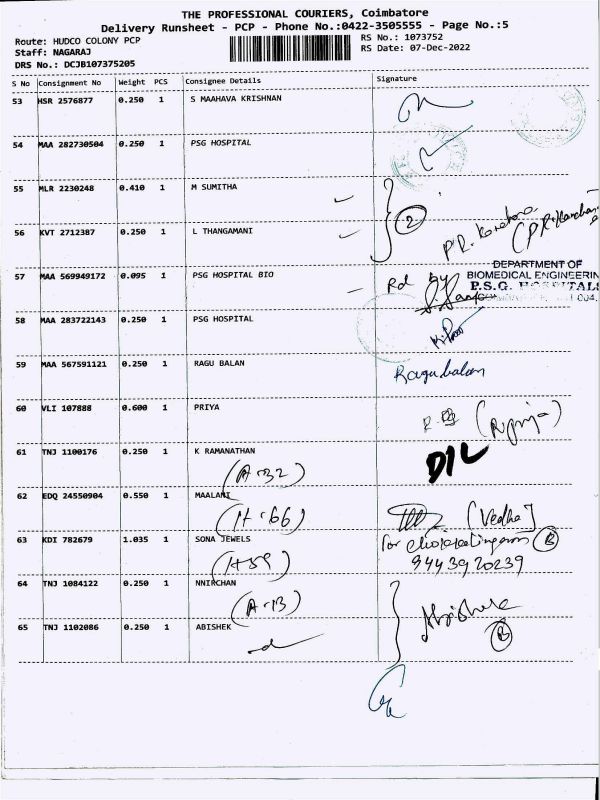 THE PROFESSIONAL COURIERS, Coimbatore
Delivery Runsheet - PCP - Phone No.:0422-3505555 - Page No.:5
Route: HUDCO COLONY PCP
Staff: NAGARAJ
DRS No.: DCJB107375205
RS No.: 1073752
RS Date: 07-Dec-2022
S No Consignment No Weight PCS Consignee Details Signature
53 HSR 2576877 0.250 1 S MAAHAVA KRISHNAN
54 MAA 282730504 0.250 1 PSG HOSPITAL
55 MLR 2230248 0.410 1 M SUMITHA
2
56 KVT 2712387 0.250 1 L THANGAMANI
57 MAA 569949172 0.095 1 PSG HOSPITAL BIO
Rd by
DEPARTMENT OF
BIOMEDICAL ENGINEERIN
P.S.G. HOSPITALS
58 MAA 283722143 0.250 1 PSG HOSPITAL
59 MAA 567591121 0.250 1 RAGU BALAN
Ragubalan
60 VLI 107888 0.600 1 PRIYA
(R.priya)
61 TNJ 1100176 0.250 1 K RAMANATHAN
(A-32)
D/L
62 EDQ 24550904 0.550 1 MAALANI
(H-66)
[Vedha]
63 KDI 782679 1.035 1 SONA JEWELS
(H59)
for
9443920239
64 TNJ 1084122 0.250 1 NNIRCHAN
(A-13)
65 TNJ 1102086 0.250 1 ABISHEK
Abishek
B